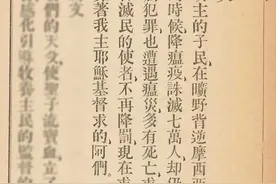 文
主的子民在曠野背逆摩西
時候降瘟疫誅滅七萬人却仍
犯罪也遭遇瘟災多有死亡求
滅民的使者不再降罰現在求
著我主耶穌基督求的阿們。
文
們的天父使聖子流寶血立了
化引導牧養主民的監督的